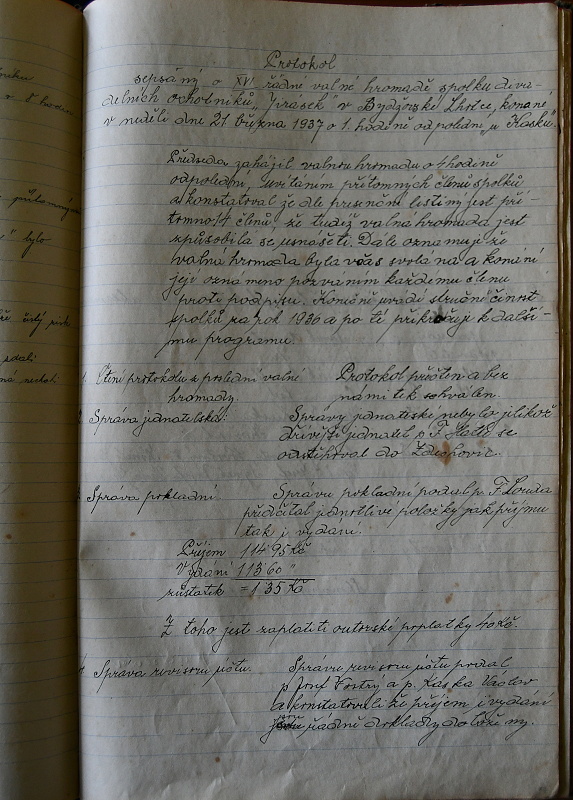 mku
v 8 hodin
přítomných
" bylo
čistý zisk
zdali
Protokol
sepsaný o XVI. řádné valné hromadě spolku diva-
delních ochotníků „Jirásek" v Bydžovské Lhotce, konané
v neděli dne 21 března 1937 o 1. hodině odpolední „u Kasků".
Předseda zahájil valnou hromadu o 1 hodině
odpolední, uvítáním přítomných členů spolků
a konstatoval že dle presenční listiny jest pří-
tomno 14 členů, že tudíž valná hromada jest
způsobila se usnášeti. Dále oznamuje že
valna hromada byla včas svolána a konání
její oznameno pozváním každému členu
proti podpisu. Konečně uvádí stručně činost
spolků za rok 1936 a po té přikračuje k další-
mu programu.
1. Čtení protokolu z poslední valné
hromady.
Protokol přečten a bez
namitek schválen.
Správa jednatelská:
Správy jednatelské nebylo jelikož
dřívější jednatel p. F. se
odstěhoval do Zduchovic.
Správa pokladní.
Správu pokladní podal p. F. Louda
předčítal jednotlivé položky jak příjmu
tak i vydání.
Příjem 114.95 Kč
Vydání 113.60 "
zůstatek = 1.35 Kč
Z toho jest zaplatiti autorské poplatky 40 Kč.
4. Správa revisorů účtu.
Správu revisorů účtu podal
p. Josef Vostrý a p. Kaska Václav
a konstatovali že příjem i vydání
řádně doklady doloženy.